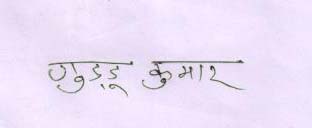 गुड्डू कुमार